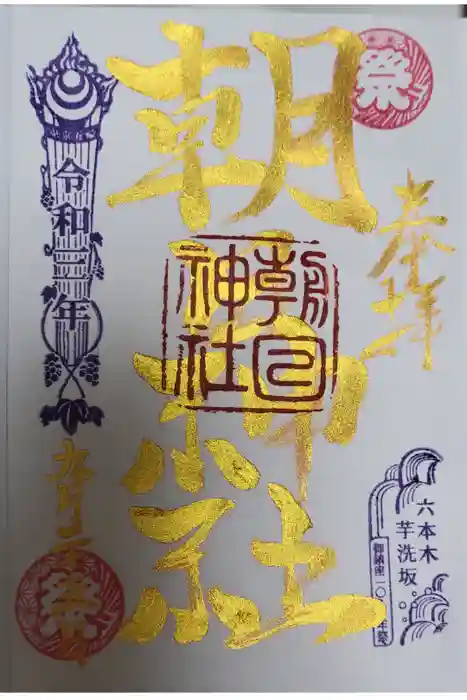 奉拝
朝日神社
朝日
神社
祭
令和三年
九月
祭
六本木
芋洗坂
御鎮座一〇 年祭